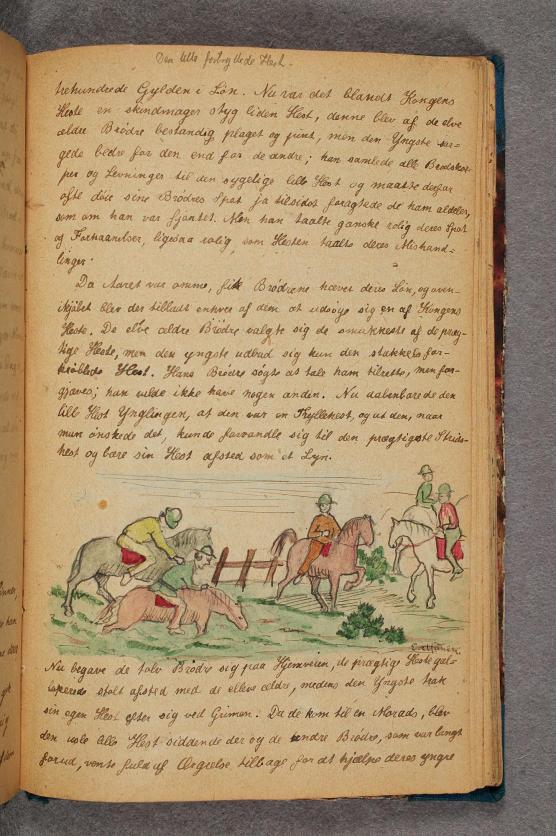 Den lille fortryllede Hest.
trehundrede Gylden i Løn. Nu var det blandt Kongens
Heste en skindmager styg liden Hest, denne blev af de elve
ældre Brödre bestandig plaget og piint, men den Yngste sør-
gede bedre for den end for de andre; han samlede alle Brødskor-
per og Levninger til den sygelige lille Hest og maatte derfor
ofte döie sine Brödres Spot ja tilsidst foragtede de ham aldeles,
som om han var fjantet. Men han taalte ganske rolig deres Spot
og Fornærmelser, ligesaa rolig som Hesten taalte deres Mishand-
linger.
Da Aaret var omme, fik Brödrene hæver deres Løn, og oven-
ikjøbet blev der tilladt enhver af dem at udsøge sig en af Kongens
Heste. De elve ældre Brödre valgte sig de smukkeste af de præg-
tige Heste, men den yngste udbad sig kun den stakkels for-
kröblede Hest. Hans Brödre sögte at tale ham tilrette, men for-
gjæves; han vilde ikke have nogen anden. Nu aabenbarede den
lille Hest Ynglingen, at den var en Tryllehest, og at den, naar
man önskede det, kunde forvandle sig til den prægtigste Strids-
hest og bære sin Hest afsted som et Lyn.
Nu begave de tolv Brödre sig paa Hjemveien, de prægtige Heste gal-
loperede stolt afsted med de elleve ældre, medens den Yngste trak
sin egen Hest efter sig ved Grimen. Da de kom til en Morads, blev
den usle lille Hest siddende der og de andre Brödre, som var langt
forud, vente fuld af Ærgrelse tilbage for at hjælpe deres yngre